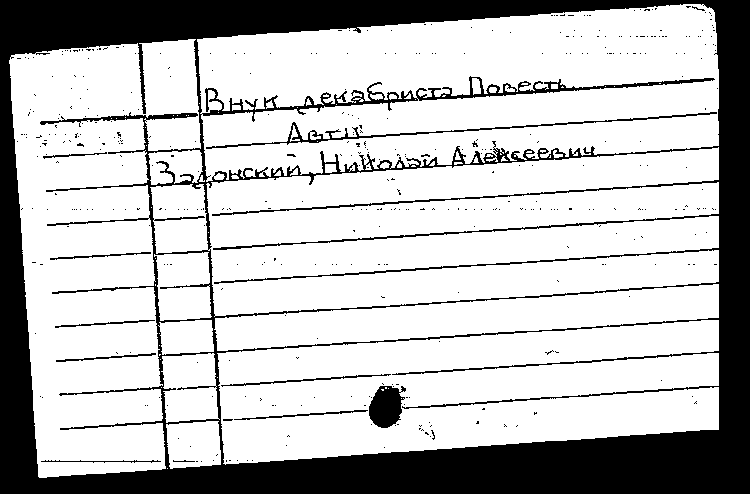 Внук декабриста Повесть
Авт
Задонский, Николай Алексеевич